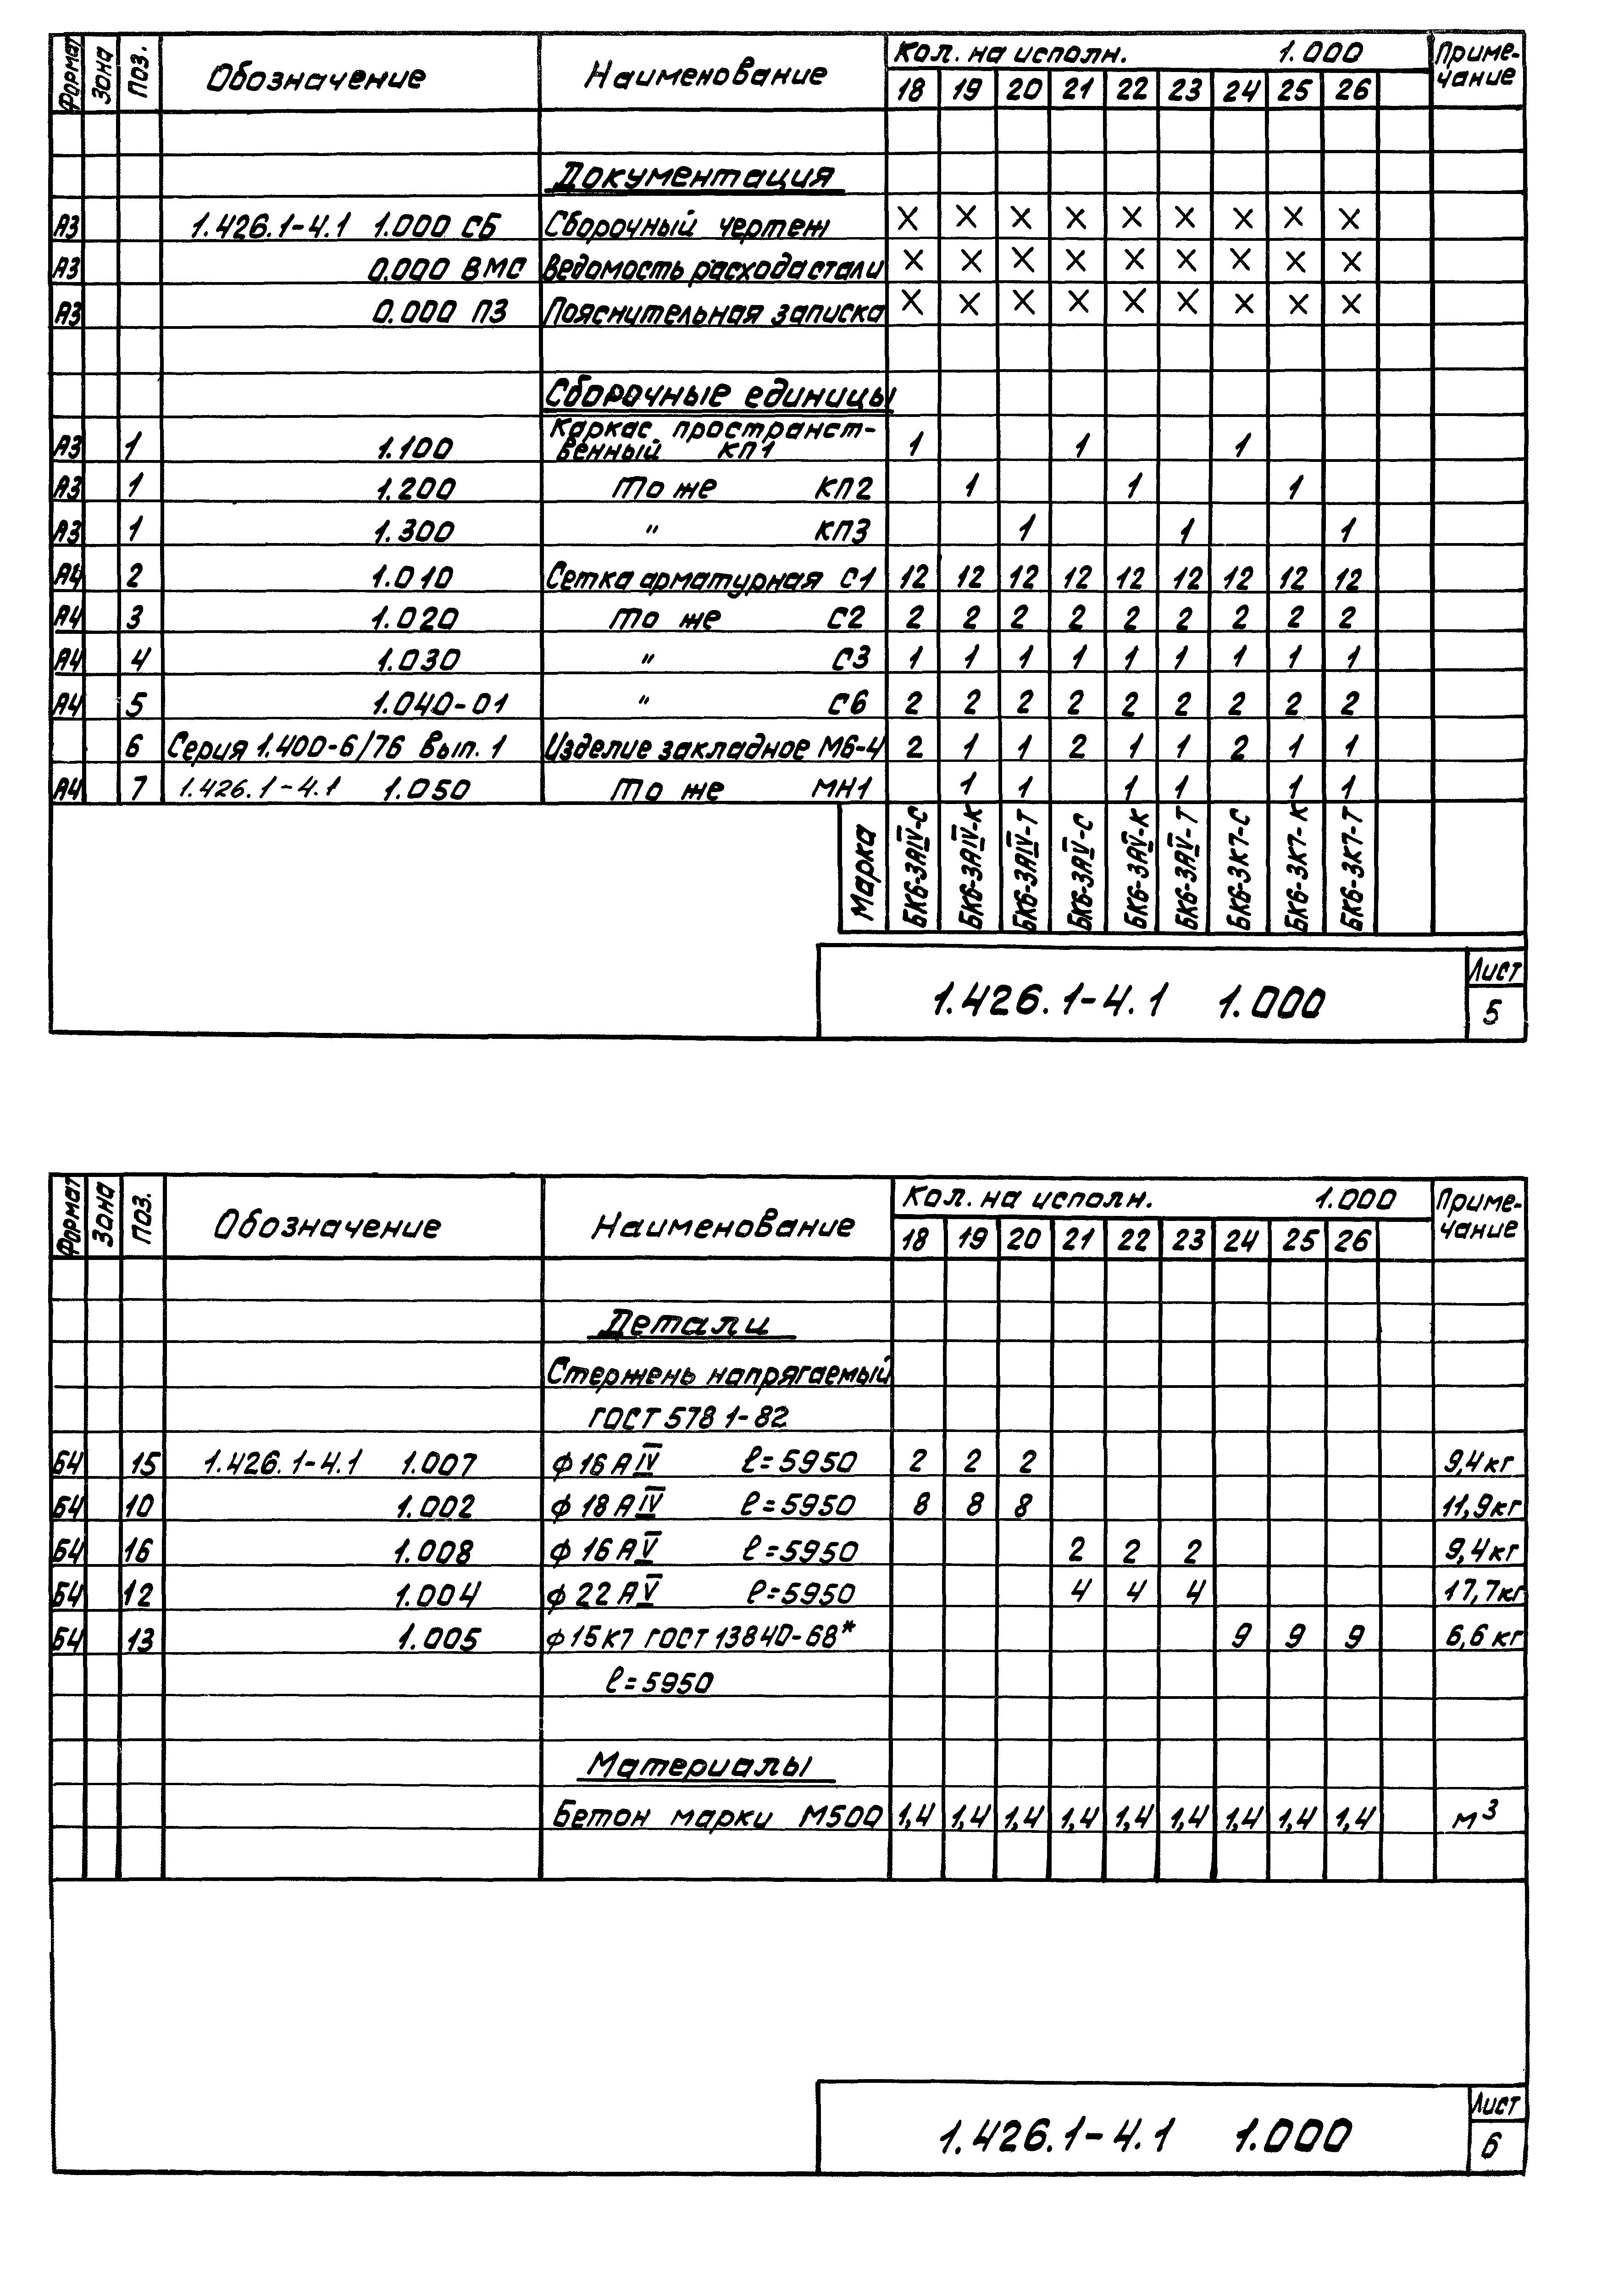 Формат Зона Поз. Обозначение Наименование Кол. на исполн. 1.000 Приме-
чание
18 19 20 21 22 23 24 25 26
Документация
А3 1.426.1-4.1 1.000 СБ Сборочный чертеж X X X X X X X X X
А3 0.000 ВМС Ведомость расхода стали X X X X X X X X X
А3 0.000 ПЗ Пояснительная записка X X X X X X X X X
Сборочные единицы
Каркас пространст-
А3 1 1.100 венный КП1 1 1 1
А3 1 1.200 То же КП2 1 1 1
А3 1 1.300 " КП3 1 1 1
А4 2 1.010 Сетка арматурная С1 12 12 12 12 12 12 12 12 12
А4 3 1.020 То же С2 2 2 2 2 2 2 2 2 2
А4 4 1.030 " С3 1 1 1 1 1 1 1 1 1
А4 5 1.040-01 " С6 2 2 2 2 2 2 2 2 2
6 Серия 1.400-6/76 вып. 1 Изделие закладное М6-4 2 1 1 2 1 1 2 1 1
А4 7 1.426.1-4.1 1.050 То же МН1 1 1 1 1 1 1
Марка БК6-3АIV-С БК6-3АIV-К БК6-3АIV-Т БК6-3АV-С БК6-3АV-К БК6-3АV-Т БК6-3К7-С БК6-3К7-К БК6-3К7-Т
1.426.1-4.1 1.000
Лист
5
Формат Зона Поз. Обозначение Наименование Кол. на исполн. 1.000 Приме-
чание
18 19 20 21 22 23 24 25 26
Детали
Стержень напрягаемый
ГОСТ 5781-82
Б4 15 1.426.1-4.1 1.007 ф 16 А IV ℓ=5950 2 2 2 9,4кг
Б4 10 1.002 ф 18 А IV ℓ=5950 8 8 8 11,9кг
Б4 16 1.008 ф 16 А V ℓ=5950 2 2 2 9,4кг
Б4 12 1.004 ф 22 А V ℓ=5950 4 4 4 17,7кг
Б4 13 1.005 ф 15К7 ГОСТ 13840-68* 9 9 9 6,6 кг
ℓ=5950
Материалы
Бетон марки М500 1,4 1,4 1,4 1,4 1,4 1,4 1,4 1,4 1,4 м³
1.426.1-4.1 1.000
Лист
6